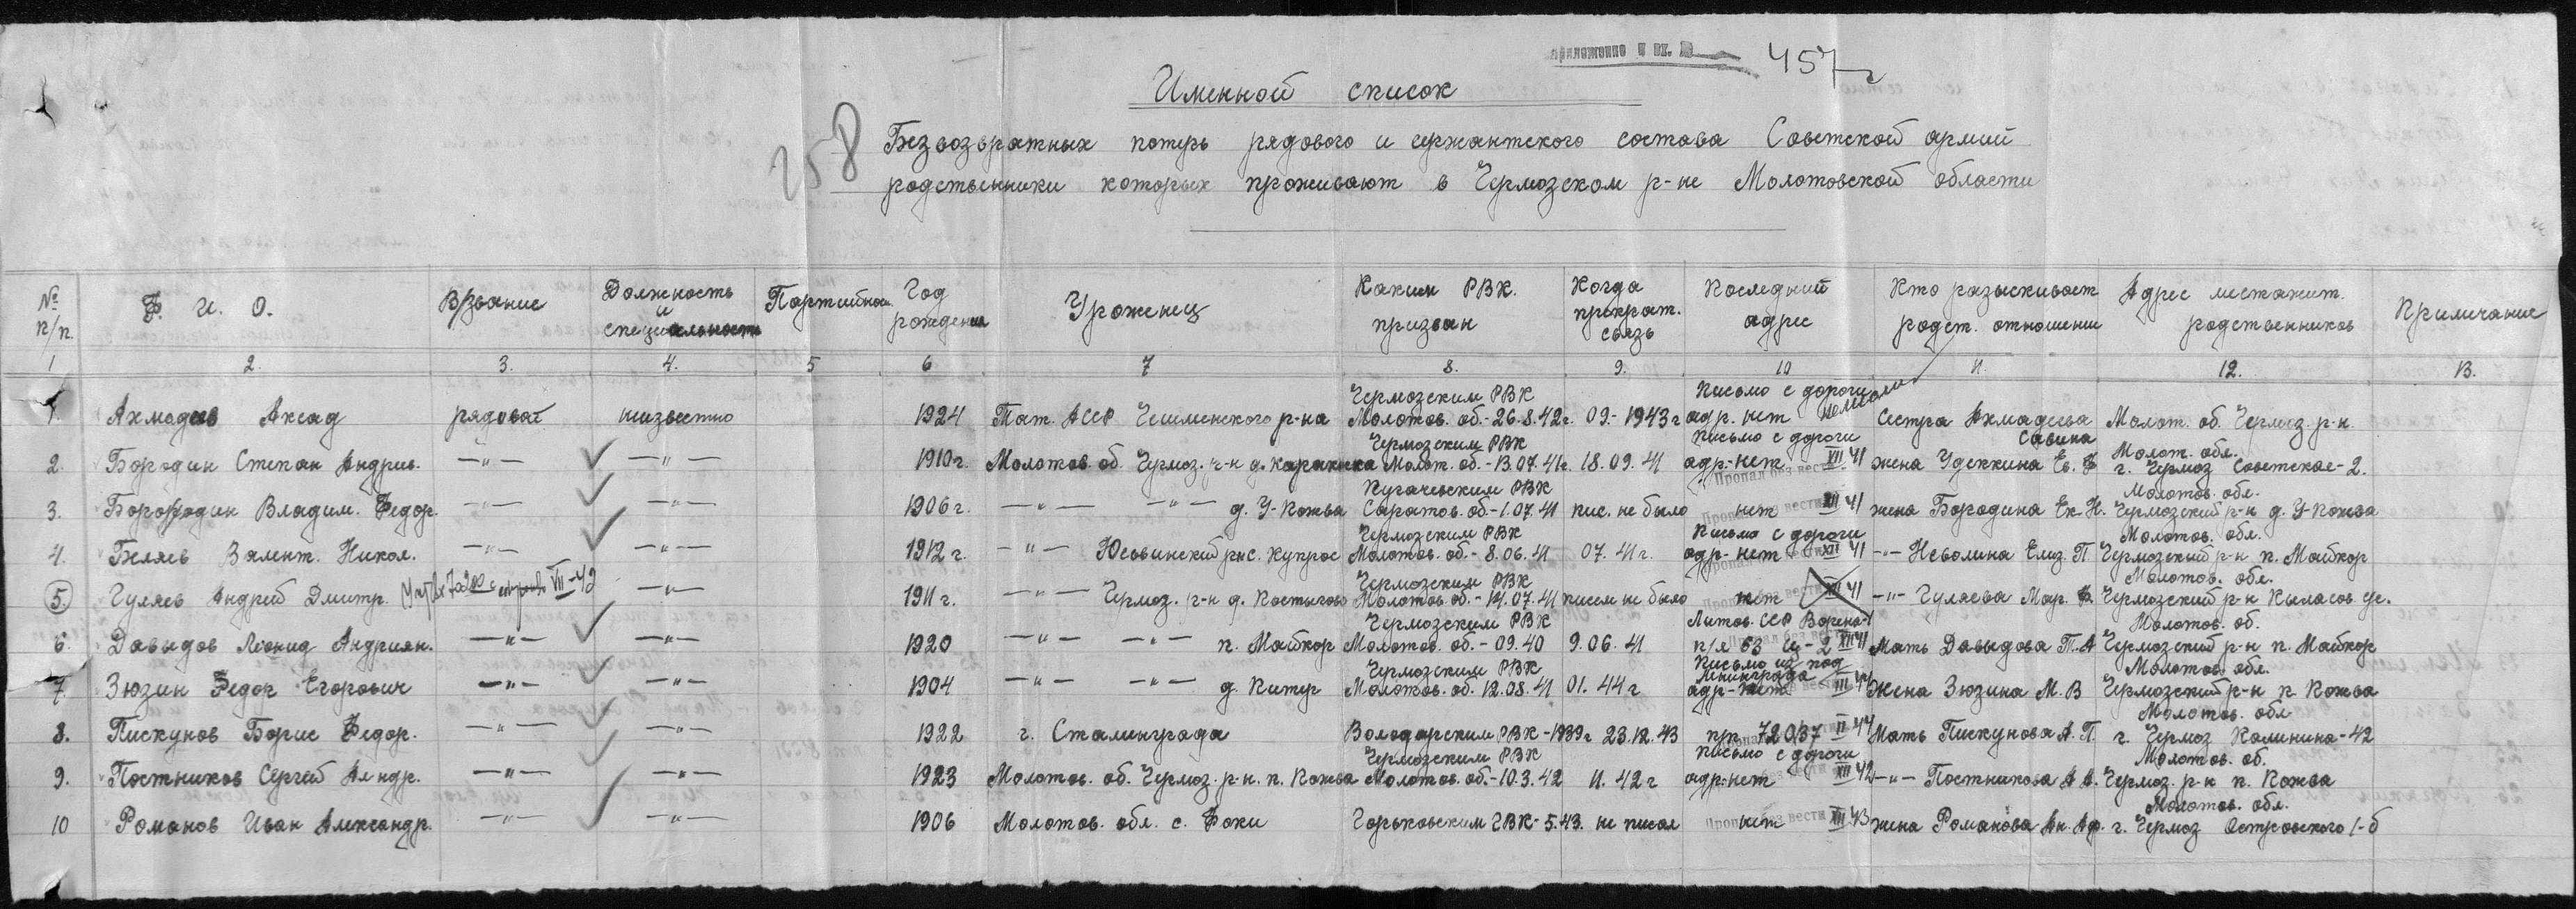 приложение к вх. №
457
Именной список
258
Безвозвратных потерь рядового и сержантского состава Советской армии
родственники которых проживают в Чермозском р-не Молотовской области
№ п/п. Ф. И. О. В/звание Должность и специальность Партийнос. Год рождения Уроженец Каким РВК. призван Когда прократ. связь Последний адрес Кто разыскивает родст. отношение Адрес местожит. родственников Примечание
1 2. 3. 4. 5 6 7 8. 9. 10 11. 12. 13.
1. Ахмадеев Аксад рядовой неизвестно 1924 Тат. АССР Чешминского р-на Чермозским РВК Молотов. об.-26.8.42г. 09-1943г Письмо с дороги адр. нет Сестра Ахмадеева Савина Молот. об. Чермоз. р-н.
2. Бородин Степан Андрие. —"— —"— 1910г. Молотов. об. Чермоз. р-н д. Чермозским РВК Молот. об.-13.07.41г. 18.09.41 Письмо с дороги адр.-нет Пропал без вести XII 41 жена Удеккина Ев. Ф Молот. обл. г. Чермоз Советская-2.
3. Бородин Владим. Федор. —"— —"— 1906г. —"— —"— д. У-Кожва Пугачевским РВК Саратов. об.-1.07.41 пис. не было нет Пропал без вести XII 41 жена Бородина Ек. Н. Молотов. обл. Чермозский р-н д. У-Кожва
4. Беляев Валент. Никол. —"— —"— 1912г. —"— Юсьвинский р-н с. Купрос Чермозским РВК Молотов. об.-8.06.41 07.41г. Письмо с дороги адр-нет Пропал без вести XII 41 —"— Неволина Елиз. П. Молотов. обл. Чермозский р-н п. Майкор
5. Гуляев Андрей Дмитр. VII-42 —"— 1911г. —"— Чермоз. р-н д. Костычово Чермозским РВК Молотов. об.-14.07.41 писем не было нет Пропал без вести XII 41 —"— Гуляева Мар. Ф. Молотов. обл. Чермозский р-н Кыласов. ус.
6. Давыдов Леонид Андриян. —"— —"— 1920 —"— —"— п. Майкор Чермозским РВК Молотов. об.-09.40 9.06.41 Литов. ССР Ворена-1 п/я 63 Ц-2 Пропал без вести XII 41 Мать Давыдова Т.А Молотов. об. Чермозский р-н п. Майкор
7 Зюзин Федор Егорович —"— —"— 1904 —"— —"— д. Питер Чермозским РВК Молотов. об. 12.08.41 01.44г Письмо из под Ленинграда адр-нет без вести III 44 Жена Зюзина М. В Молотов. обл. Чермозский р-н п. Кожва
8. Пискунов Борис Федор. —"— —"— 1922 г. Сталинграда Володарским РВК-1939г 23.12.43 п/п 72037 Пропал без вести II 44 Мать Пискунова А. П. Молотов. обл. г. Чермоз Калинина-42
9. Постников Сергей Ал-ндр. —"— —"— 1923 Молотов. об. Чермоз. р-н. п. Кожва Чермозским РВК Молотов. об.-10.3.42 11.42г Письмо с дороги адр.-нет без вести XII 42 —"— Постникова А А. Молотов. об. Чермоз. р-н п. Кожва
10 Романов Иван Александр. —"— —"— 1906 Молотов. обл. с. Фоки Горьковским ГВК-5.43. не писал нет Пропал без вести XII 43 жена Романова Ан. Аф. Молотов. обл. г. Чермоз Островского 1-б